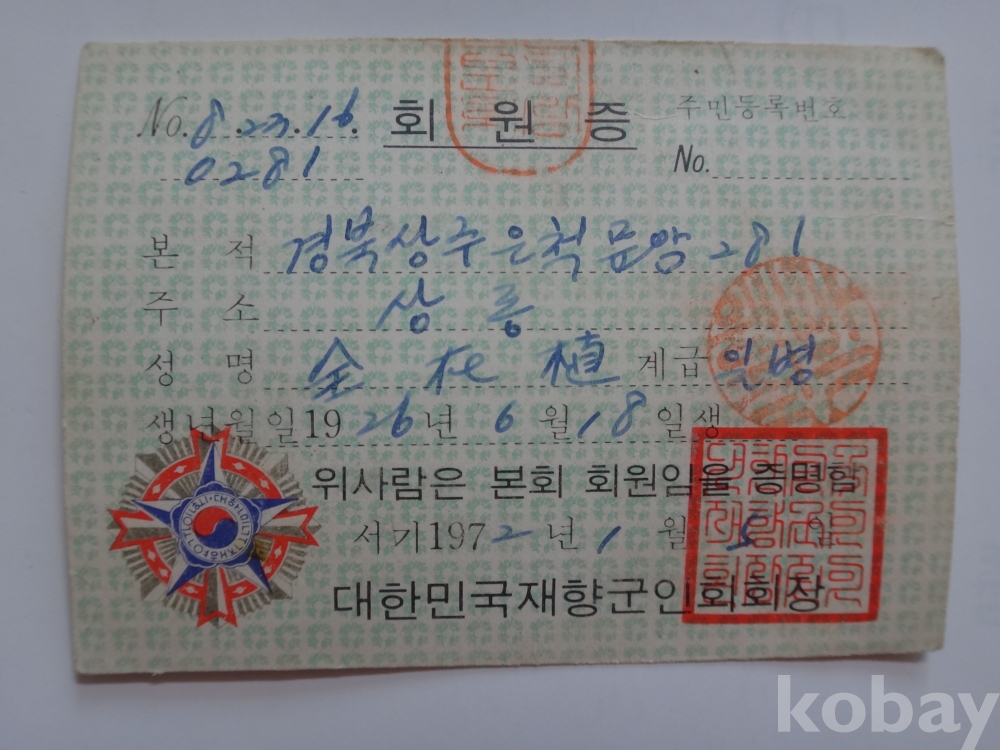 No. 8.23.16. 회원증 주민등록번호
0281 No.
본적 경북상주은척문암281
주소 상동
성명 金在植 계급 일병
생년월일 1926년 6월 18일생
위사람은 본회 회원임을 증명함
서기 1972년 1월 5일
대한민국재향군인회회장
kobay